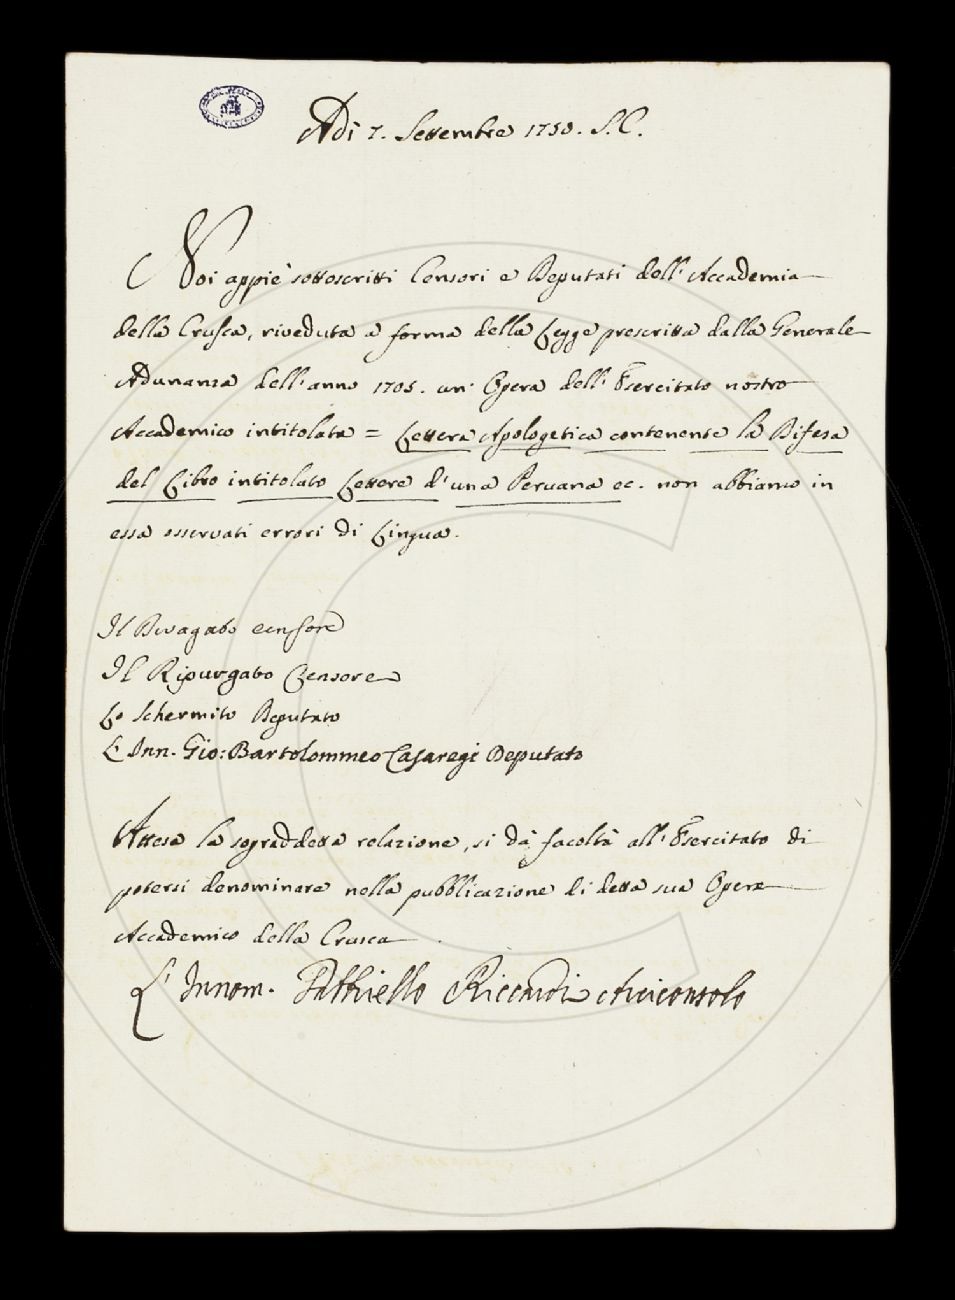 Adì 7. Settembre 1750. S.C.
Noi appiè sottoscritti Censori e Deputati dell' Accademia
della Crusca, riveduta a forma della Legge prescritta dalla Generale
Adunanza dell' anno 1705. un' Opera dell' Esercitato nostro
Accademico intitolata = Lettera Apologetica contenente la Difesa
del Libro intitolato Lettere d'una Peruana ec. non abbiamo in
essa osservati errori di Lingua.
Il Divagato censore
Il Ripurgato Censore
Lo Schermito Deputato
L'Inn. Gio: Bartolommeo Casaregi Deputato
Attesa la sopraddetta relazione, si dà facoltà all' Esercitato di
potersi denominare nella pubblicazione di detta sua Opera
Accademico della Crusca.
L' Innom. Riccardi Arciconsolo